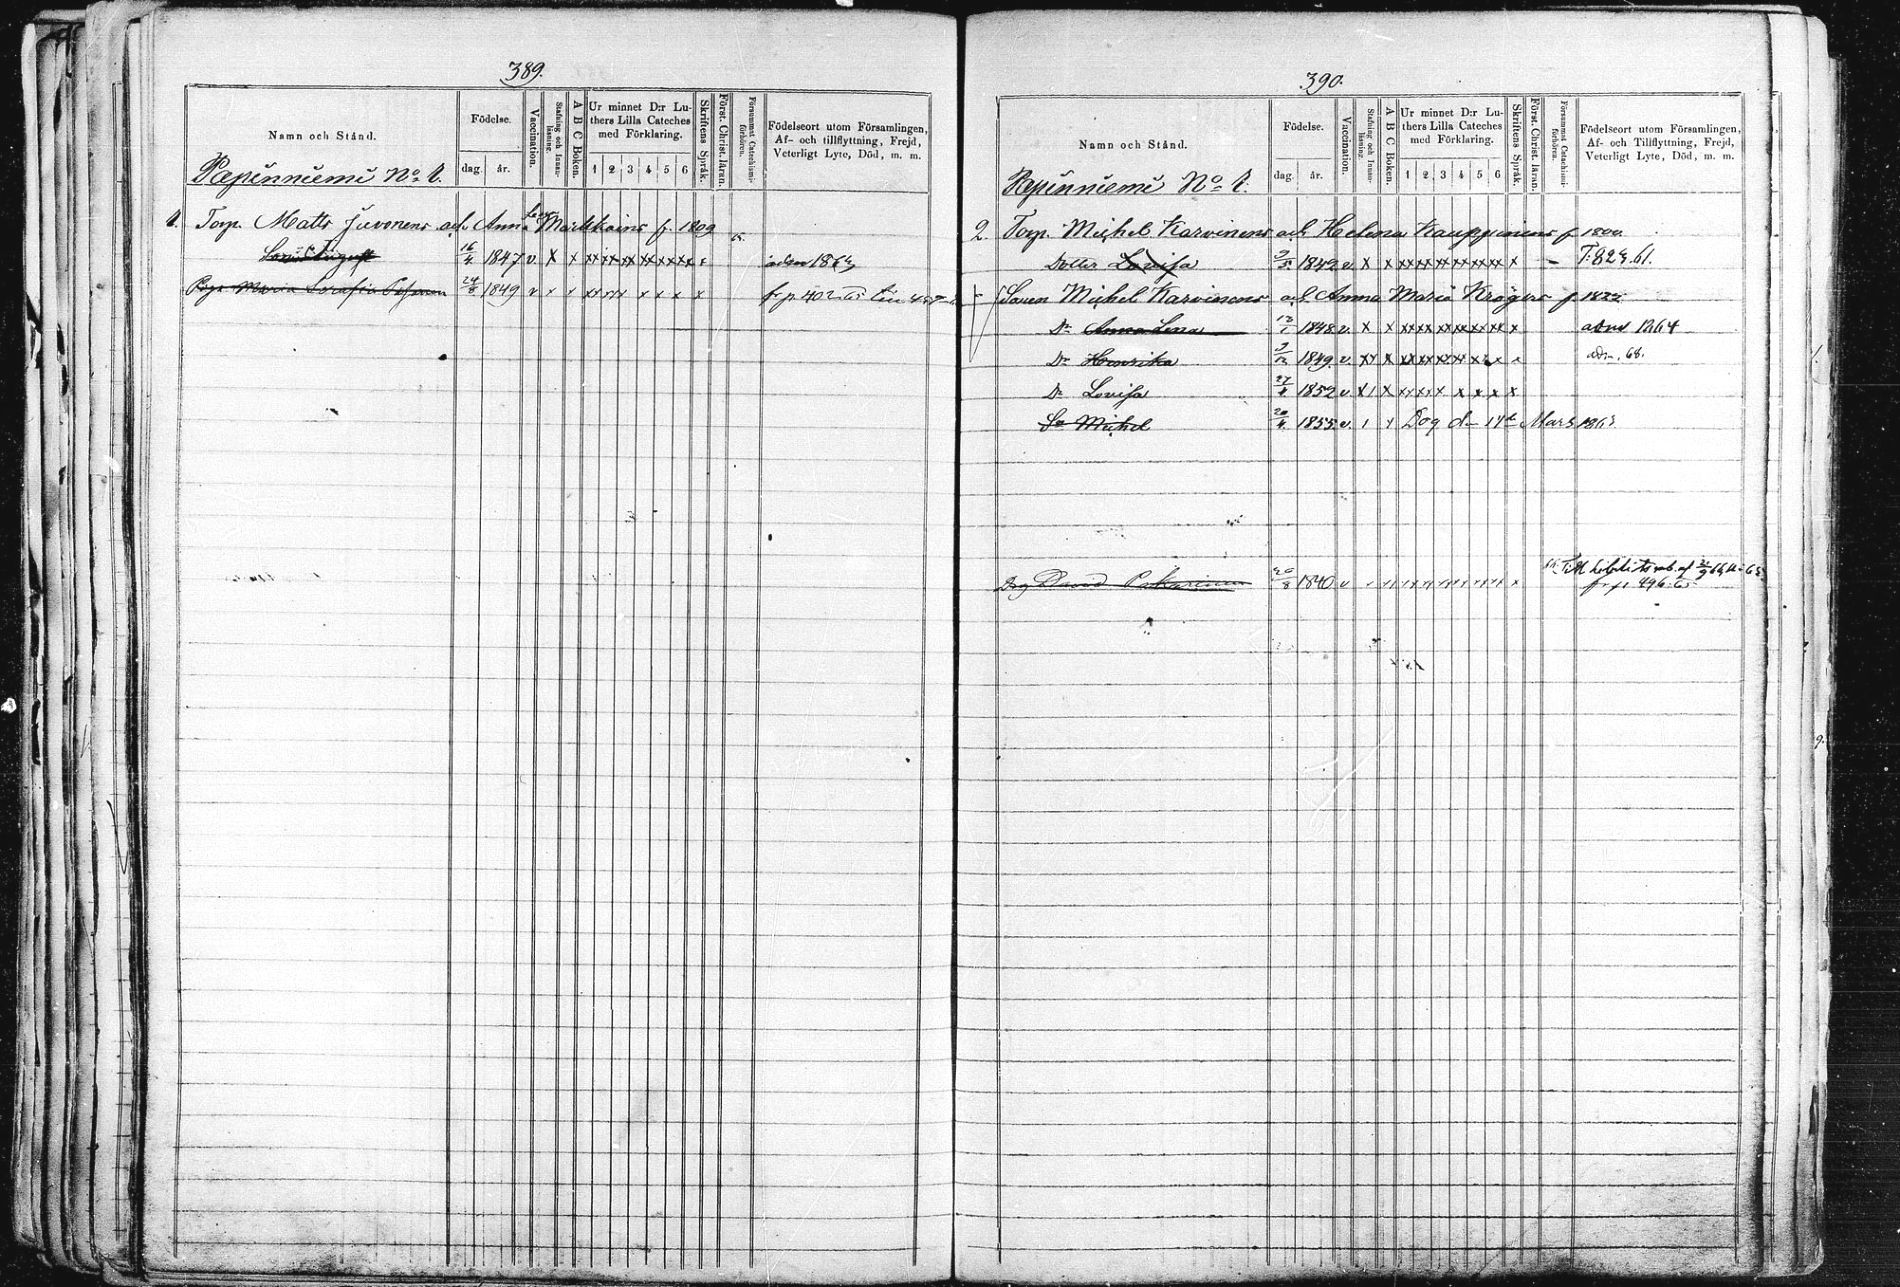 389.
Namn och Stånd.
Födelse.
dag. år.
Vaccination.
Stafning och Innan-läsning.
A B C Boken.
Ur minnet D:r Lu-
thers Lilla Cateches
med Förklaring.
1 2 3 4 5 6
Skriftens Språk.
Först. Christ. läran.
Försummat Catechismi-förhören.
Födelseort utom Församlingen,
Af- och tillflyttning, Frejd,
Veterligt Lyte, Död, m. m.
Papinniemi No 1.
1. Torp. Matts Juvonens och Anna Lena Martikains f. 1809
Son August 16/4 1847 v x x xx xx xx xx xx xx
Maria Serafia 24/8 1849 v x x xx xx x x x x x fr p 402
390.
Namn och Stånd.
Födelse.
dag. år.
Vaccination.
Stafning och Innan-läsning.
A B C Boken.
Ur minnet D:r Lu-
thers Lilla Cateches
med Förklaring.
1 2 3 4 5 6
Skriftens Språk.
Först. Christ. läran.
Försummat Catechismi-förhören.
Födelseort utom Församlingen,
Af- och Tillflyttning, Frejd,
Veterligt Lyte, Död, m. m.
Papinniemi No 1.
2. Torp. Michel Karvinens och Helena Kauppinens f 1800.
Dotter Lovisa 1842 v x x xx xx xx xx xx xx x – T. 823. 61.
Sonen Michel Karvinens och Anna Maria Krögers f. 1822
Dr Anna Lena 1848 v. x x xx xx xx xx xx xx x adm 1864
Dr Henrika 1849 v. xx x xx xx xx xx xx x adm. 68.
Dr Lovisa 27/4 1852 v x x xx xx x x x x x
Sn Michel 20/4 1855 v. Dog d– 14de Mars 1863
Drg David 20/8 1840 v fr p 496. 65